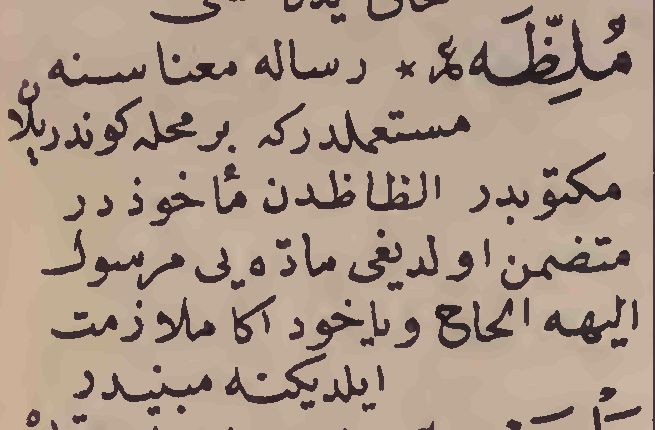 مُلِظَّه ع م * رساله معناسنه
مستعملدركه بر محله كوندريلان
مكتوبدر الظاظدن مأخوذدر
متضمن اولديغى مادّه يى مرسول
اليهه الحاح وياخود اكا ملازمت
ايلديكنه مبنيدر